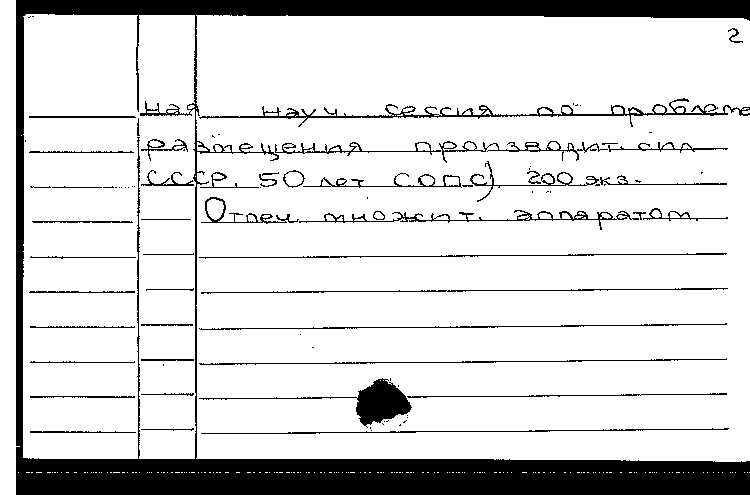 2
ная науч. сессия по проблеме
размещения производит. сил
СССР. 50 лет СОПС) 200 экз.
Отпеч. множит. аппаратом.